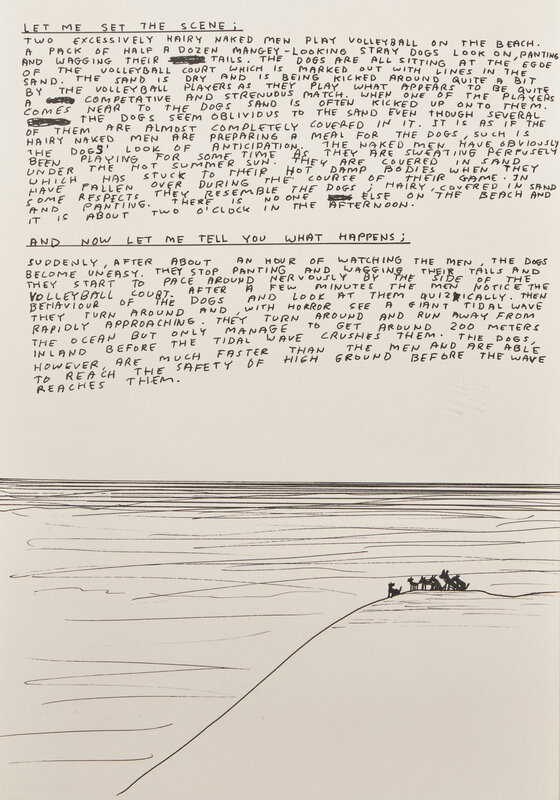 LET ME SET THE SCENE;
TWO EXCESSIVELY HAIRY NAKED MEN PLAY VOLLEYBALL ON THE BEACH.
A PACK OF HALF A DOZEN MANGEY-LOOKING STRAY DOGS LOOK ON, PANTING
AND WAGGING THEIR TAILS. THE DOGS ARE ALL SITTING AT THE EGDE
OF THE VOLLEYBALL COURT WHICH IS MARKED OUT WITH LINES IN THE
SAND. THE SAND IS DRY AND IS BEING KICKED AROUND QUITE A BIT
BY THE VOLLEYBALL PLAYERS AS THEY PLAY WHAT APPEARS TO BE QUITE
A COMPETATIVE AND STRENUOUS MATCH. WHEN ONE OF THE PLAYERS
COMES NEAR TO THE DOGS SAND IS OFTEN KICKED UP ONTO THEM.
THE DOGS SEEM OBLIVIOUS TO THE SAND EVEN THOUGH SEVERAL
OF THEM ARE ALMOST COMPLETELY COVERED IN IT. IT IS AS IF THE
HAIRY NAKED MEN ARE PREPARING A MEAL FOR THE DOGS, SUCH IS
THE DOGS' LOOK OF ANTICIPATION. THE NAKED MEN HAVE OBVIOUSLY
BEEN PLAYING FOR SOME TIME AS THEY ARE SWEATING PERFUSELY
UNDER THE HOT SUMMER SUN. THEY ARE COVERED IN SAND
WHICH HAS STUCK TO THEIR HOT DAMP BODIES WHEN THEY
HAVE FALLEN OVER DURING THE COURSE OF THEIR GAME. IN
SOME RESPECTS THEY RESEMBLE THE DOGS; HAIRY, COVERED IN SAND
AND PANTING. THERE IS NO ONE ELSE ON THE BEACH AND
IT IS ABOUT TWO O'CLOCK IN THE AFTERNOON.
AND NOW LET ME TELL YOU WHAT HAPPENS;
SUDDENLY, AFTER ABOUT AN HOUR OF WATCHING THE MEN, THE DOGS
BECOME UNEASY. THEY STOP PANTING AND WAGGING THEIR TAILS AND
THEY START TO PACE AROUND NERVOUSLY BY THE SIDE OF THE
VOLLEYBALL COURT. AFTER A FEW MINUTES THE MEN NOTICE THE
BEHAVIOUR OF THE DOGS AND LOOK AT THEM QUIZICALLY. THEN
THEY TURN AROUND AND, WITH HORROR SEE A GIANT TIDAL WAVE
RAPIDLY APPROACHING. THEY TURN AROUND AND RUN AWAY FROM
THE OCEAN BUT ONLY MANAGE TO GET AROUND 200 METERS
INLAND BEFORE THE TIDAL WAVE CRUSHES THEM. THE DOGS,
HOWEVER, ARE MUCH FASTER THAN THE MEN AND ARE ABLE
TO REACH THE SAFETY OF HIGH GROUND BEFORE THE WAVE
REACHES THEM.